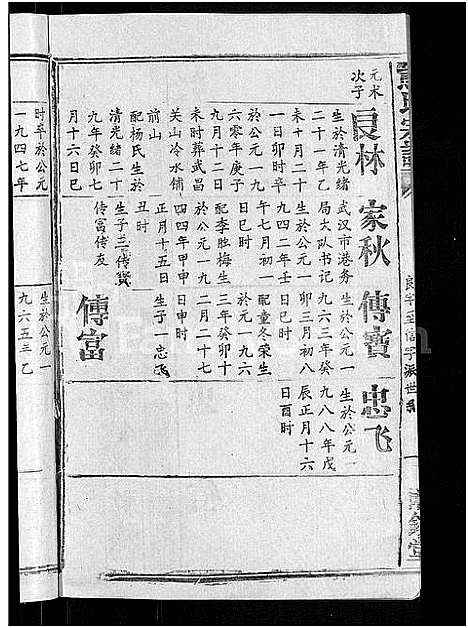 良字至信字派世系
元末
次子
良林
生於清光緒
二十一年乙
未十月二十
一日卯时卒
於公元一九
六零年庚子
九月十二日
未时葬武昌
关山冷水铺
前山
配杨氏生於
清光绪二十
九年癸卯七
月十六日巳
时卒於公元
一九四七年
家秋
武汉市港务
局大队书记
生於公元一
九四二年壬
午七月初一
日巳时
配李胜梅生
於公元一九
四四年甲申
正月十五日
丑时
生子三傳寶
传富传友
傳寶
生於公元一
九六三年癸
卯三月初八
日巳时
配童冬荣生
於元一九六
三年癸卯十
二月二十七
日申时
生子 忠飞
傳富
生於公元一
九六五三乙
忠飞
生於公元一
九八八年戊
辰正月十六
日酉时